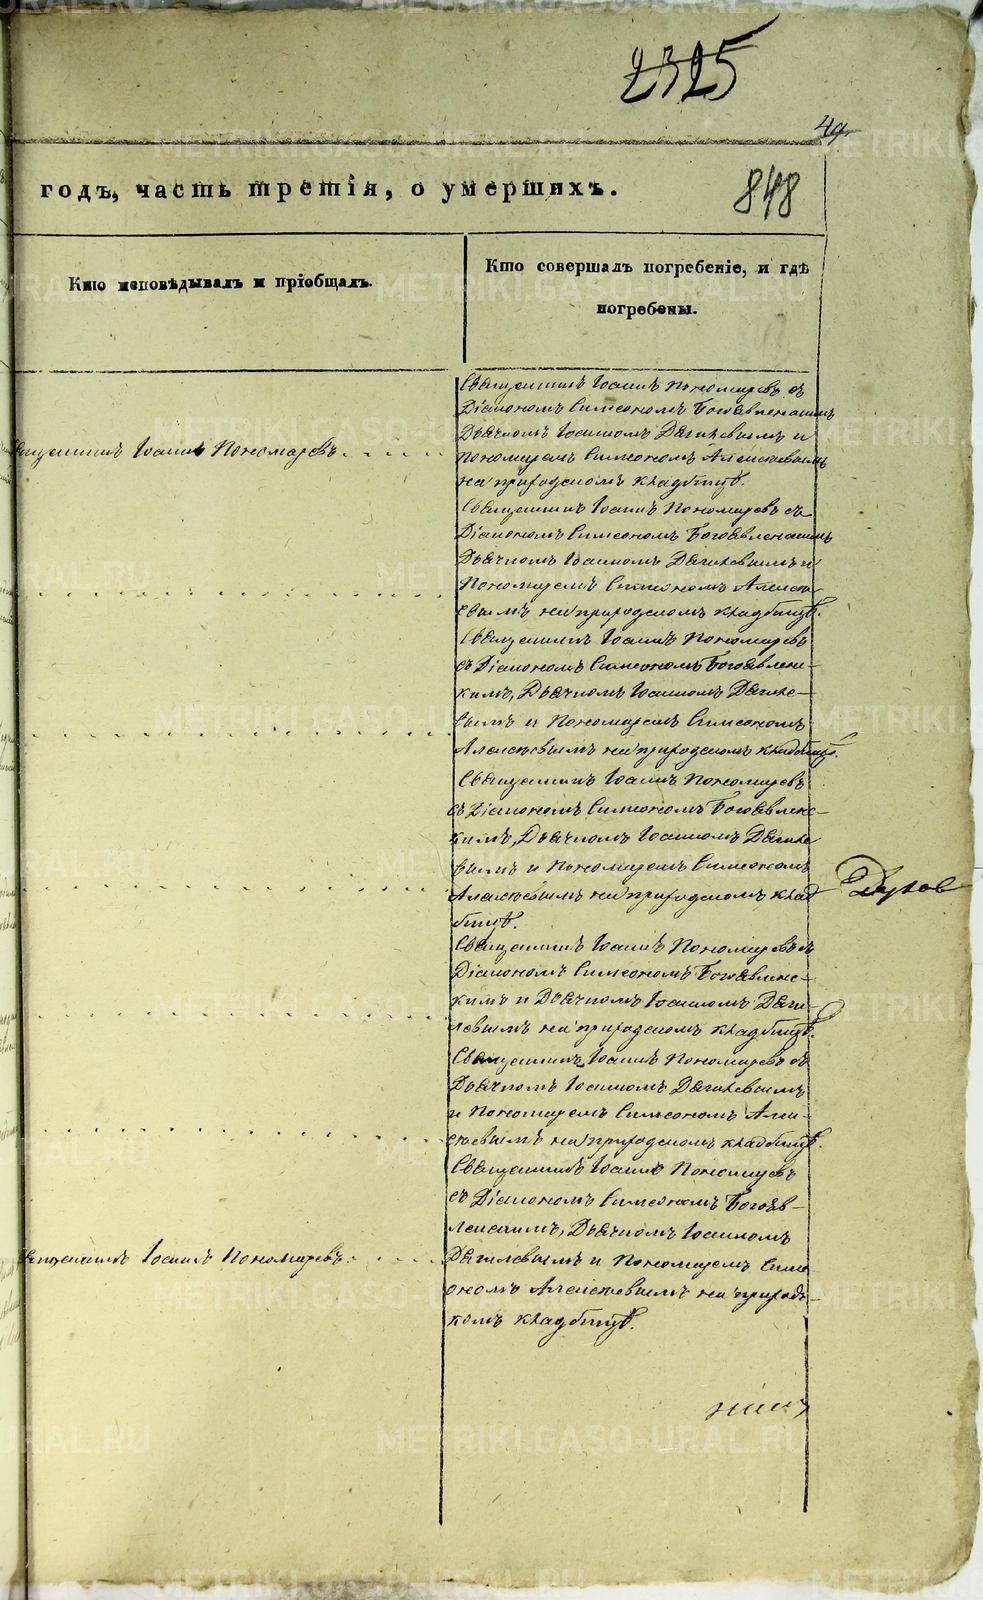 2325
49.
годъ, часть третія, о умершихъ.
848
Кто исповѣдывалъ и пріобщалъ.
Кто совершалъ погребеніе, и гдѣ
погребены.
Священникъ Іоаннъ Пономаревъ съ
Діакономъ Симеономъ Богоявленскимъ
Дьячкомъ Іоанномъ Дягилевымъ и
ященникъ Іоаннъ Пономаревъ
Пономаремъ Симеономъ Алексѣевымъ
на приходскомъ кладбищѣ.
Священникъ Іоаннъ Пономаревъ съ
Діакономъ Симеономъ Богоявленскимъ
Дьячкомъ Іоанномъ Дягилевымъ и
Пономаремъ Симеономъ Алексѣ
евымъ на приходскомъ кладбищѣ.
Священникъ Іоаннъ Пономаревъ
съ Діакономъ Симеономъ Богоявленс-
кимъ, Дьячкомъ Іоанномъ Дягиле-
вымъ и Пономаремъ Симеономъ
Алексѣевымъ на приходскомъ кладбищѣ.
Священникъ Іоаннъ Пономаревъ
съ Діакономъ Симеономъ Богоявленс-
кимъ, Дьячкомъ Іоанномъ Дягиле
вымъ и Пономаремъ Симеономъ
Алексѣевымъ на приходскомъ клад
Духов
бищѣ.
Священникъ Іоаннъ Пономаревъ съ
Діакономъ Симеономъ Богоявленс-
кимъ и Дьячкомъ Іоанномъ Дяги-
левымъ на приходскомъ кладбищѣ.
Священникъ Іоаннъ Пономаревъ съ
Дьячкомъ Іоанномъ Дягилевымъ
и Пономаремъ Симеономъ Алек-
сѣевымъ на приходскомъ кладбищѣ.
Священникъ Іоаннъ Пономаревъ
съ Діакономъ Симеономъ Богояв-
ленскимъ, Дьячкомъ Іоанномъ
вященникъ Іоаннъ Пономаревъ.
Дягилевымъ и Пономаремъ Симе
ономъ Алексѣевымъ на приходс-
комъ кладбищѣ.